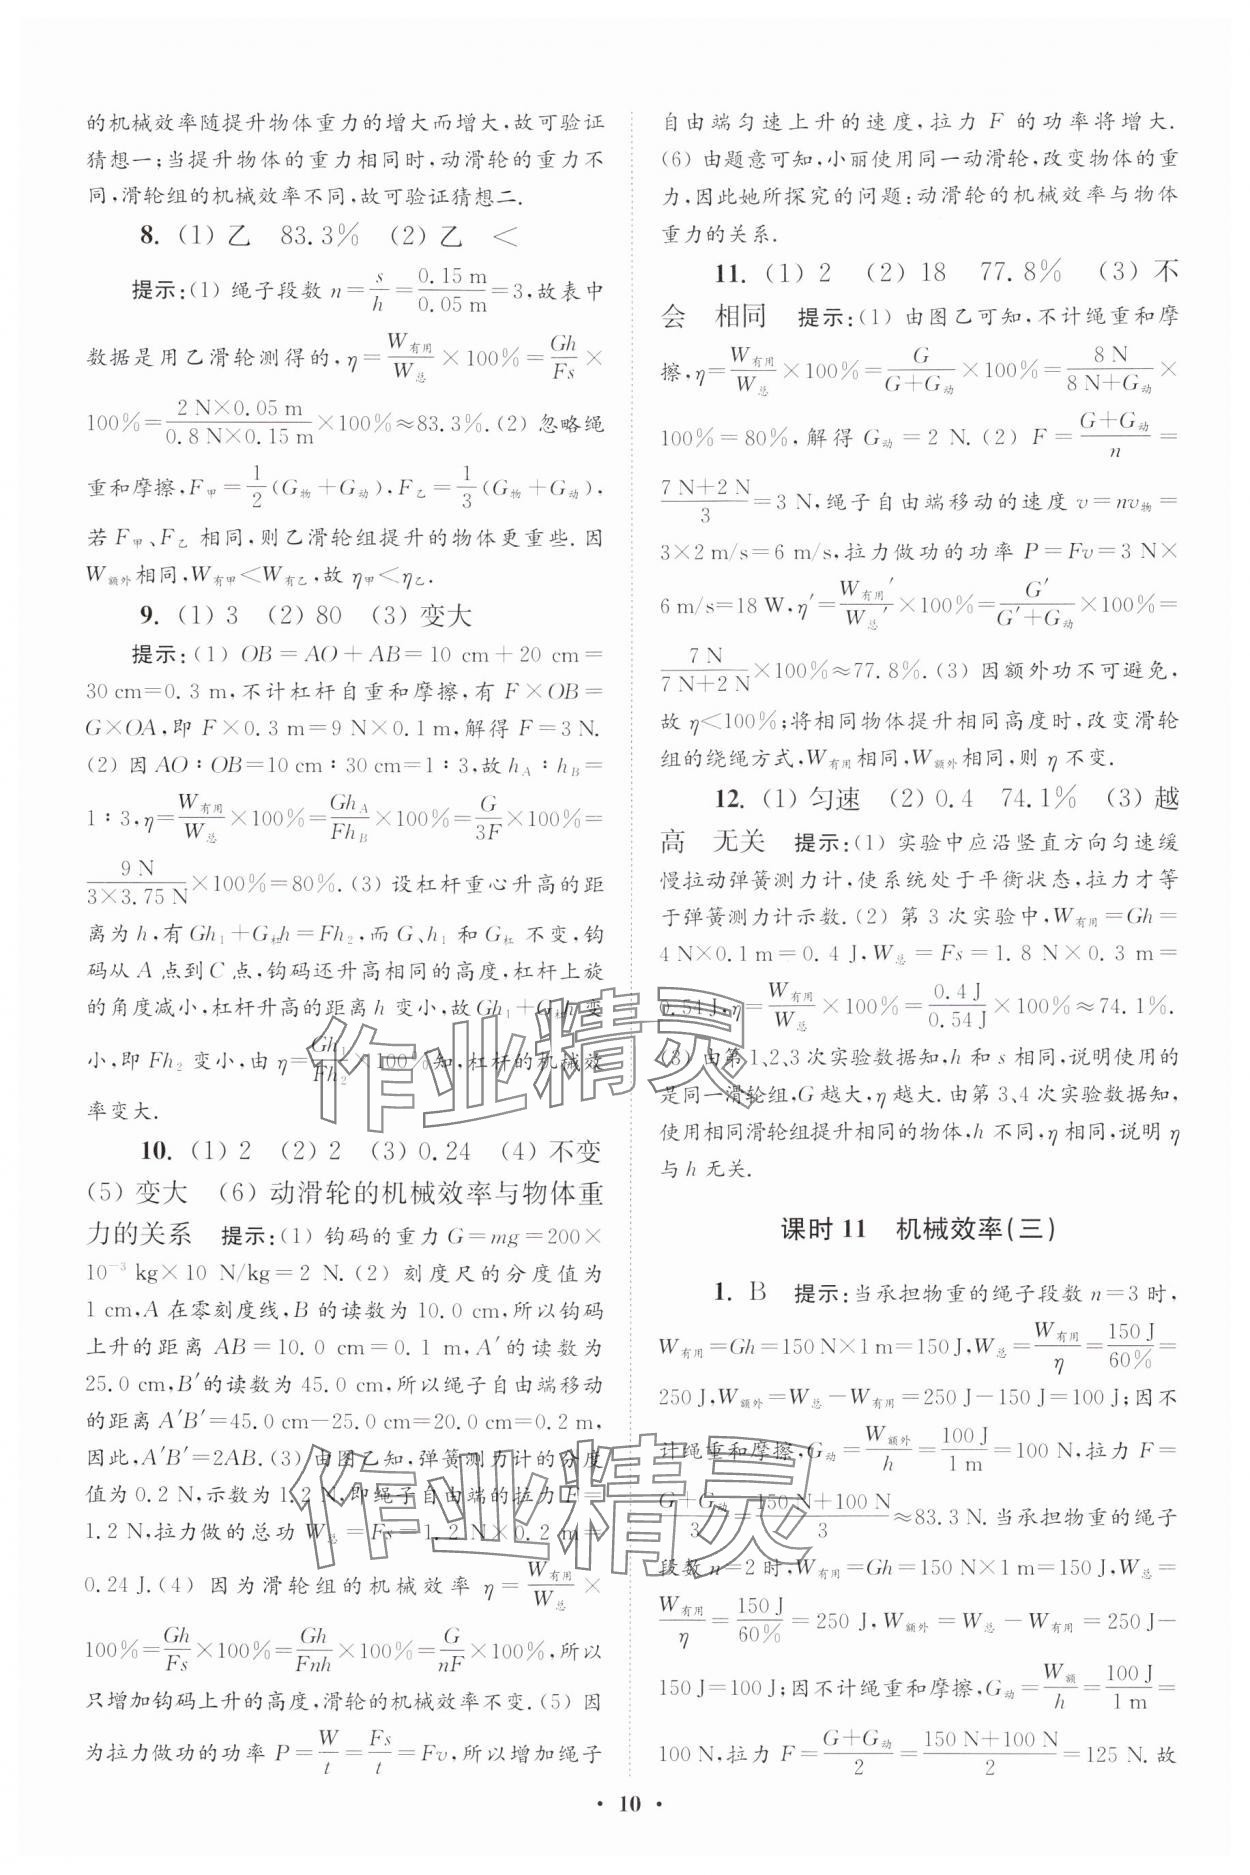 的机械效率随提升物体重力的增大而增大,故可验证
猜想一;当提升物体的重力相同时,动滑轮的重力不
同,滑轮组的机械效率不同,故可验证猜想二.
8. (1) 乙 83.3% (2) 乙 <
提示:(1) 绳子段数 n=s/h=0.15 m/0.05 m=3,故表中
数据是用乙滑轮测得的,η=W有用/W总×100%=Gh/Fs×
100%=2 N×0.05 m/0.8 N×0.15 m×100%≈83.3%.(2) 忽略绳
重和摩擦,F甲=1/2(G物+G动),F乙=1/3(G物+G动),
若 F甲、F乙 相同,则乙滑轮组提升的物体更重些.因
W额外相同,W有甲<W有乙,故 η甲<η乙.
9. (1) 3 (2) 80 (3) 变大
提示:(1) OB=AO+AB=10 cm+20 cm=
30 cm=0.3 m,不计杠杆自重和摩擦,有 F×OB=
G×OA,即 F×0.3 m=9 N×0.1 m,解得 F=3 N.
(2) 因 AO∶OB=10 cm∶30 cm=1∶3,故 hA∶hB=
1∶3,η=W有用/W总×100%=GhA/FhB×100%=G/3F×100%=
9 N/3×3.75 N×100%=80%.(3) 设杠杆重心升高的距
离为 h,有 Gh₁+G杠h=Fh₂,而 G、h₁ 和 G杠 不变,钩
码从 A 点到 C 点,钩码还升高相同的高度,杠杆上旋
的角度减小,杠杆升高的距离 h 变小,故 Gh₁+G杠h 变
小,即 Fh₂ 变小,由 η=Gh₁/Fh₂×100%知,杠杆的机械效
率变大.
10. (1) 2 (2) 2 (3) 0.24 (4) 不变
(5) 变大 (6) 动滑轮的机械效率与物体重
力的关系 提示:(1) 钩码的重力 G=mg=200×
10⁻³ kg×10 N/kg=2 N.(2) 刻度尺的分度值为
1 cm,A 在零刻度线,B 的读数为 10.0 cm,所以钩码
上升的距离 AB=10.0 cm=0.1 m,A′的读数为
25.0 cm,B′的读数为 45.0 cm,所以绳子自由端移动
的距离 A′B′=45.0 cm-25.0 cm=20.0 cm=0.2 m,
因此,A′B′=2AB.(3) 由图乙知,弹簧测力计的分度
值为 0.2 N,示数为 1.2 N,即绳子自由端的拉力 F=
1.2 N,拉力做的总功 W总=Fs=1.2 N×0.2 m=
0.24 J.(4) 因为滑轮组的机械效率 η=W有用/W总×
100%=Gh/Fs×100%=Gh/Fnh×100%=G/nF×100%,所以
只增加钩码上升的高度,滑轮的机械效率不变.(5) 因
为拉力做功的功率 P=W/t=Fs/t=Fv,所以增加绳子
自由端匀速上升的速度,拉力 F 的功率将增大.
(6) 由题意可知,小丽使用同一动滑轮,改变物体的重
力,因此她所探究的问题:动滑轮的机械效率与物体
重力的关系.
11. (1) 2 (2) 18 77.8% (3) 不
会 相同 提示:(1) 由图乙可知,不计绳重和摩
擦,η=W有用/W总×100%=G/G+G动×100%=8 N/8 N+G动×
100%=80%,解得 G动=2 N.(2) F=G+G动/n=
7 N+2 N/3=3 N,绳子自由端移动的速度 v=nv物=
3×2 m/s=6 m/s,拉力做功的功率 P=Fv=3 N×
6 m/s=18 W,η′=W有用′/W总′×100%=G′/G′+G动×100%=
7 N/7 N+2 N×100%≈77.8%.(3) 因额外功不可避免,
故 η<100%;将相同物体提升相同高度时,改变滑轮
组的绕绳方式,W有用相同,W额外相同,则 η 不变.
12. (1) 匀速 (2) 0.4 74.1% (3) 越
高 无关 提示:(1) 实验中应沿竖直方向匀速缓
慢拉动弹簧测力计,使系统处于平衡状态,拉力才等
于弹簧测力计示数.(2) 第 3 次实验中,W有用=Gh=
4 N×0.1 m=0.4 J,W总=Fs=1.8 N×0.3 m=
0.54 J,η=W有用/W总×100%=0.4 J/0.54 J×100%≈74.1%.
(3) 由第 1、2、3 次实验数据知,h 和 s 相同,说明使用的
是同一滑轮组,G 越大,η 越大.由第 3、4 次实验数据知,
使用相同滑轮组提升相同的物体,h 不同,η 相同,说明 η
与 h 无关.
课时 11 机械效率(三)
1. B 提示:当承担物重的绳子段数 n=3 时,
W有用=Gh=150 N×1 m=150 J,W总=W有用/η=150 J/60%=
250 J,W额外=W总-W有用=250 J-150 J=100 J;因不
计绳重和摩擦,G动=W额外/h=100 J/1 m=100 N,拉力 F=
G+G动/3=150 N+100 N/3≈83.3 N.当承担物重的绳子
段数 n=2 时,W有用=Gh=150 N×1 m=150 J,W总=
W有用/η=150 J/60%=250 J,W额外=W总-W有用=250 J-
150 J=100 J;因不计绳重和摩擦,G动=W额/h=100 J/1 m=
100 N,拉力 F=G+G动/2=150 N+100 N/2=125 N.故
• 10 •
作业精灵
作业精灵